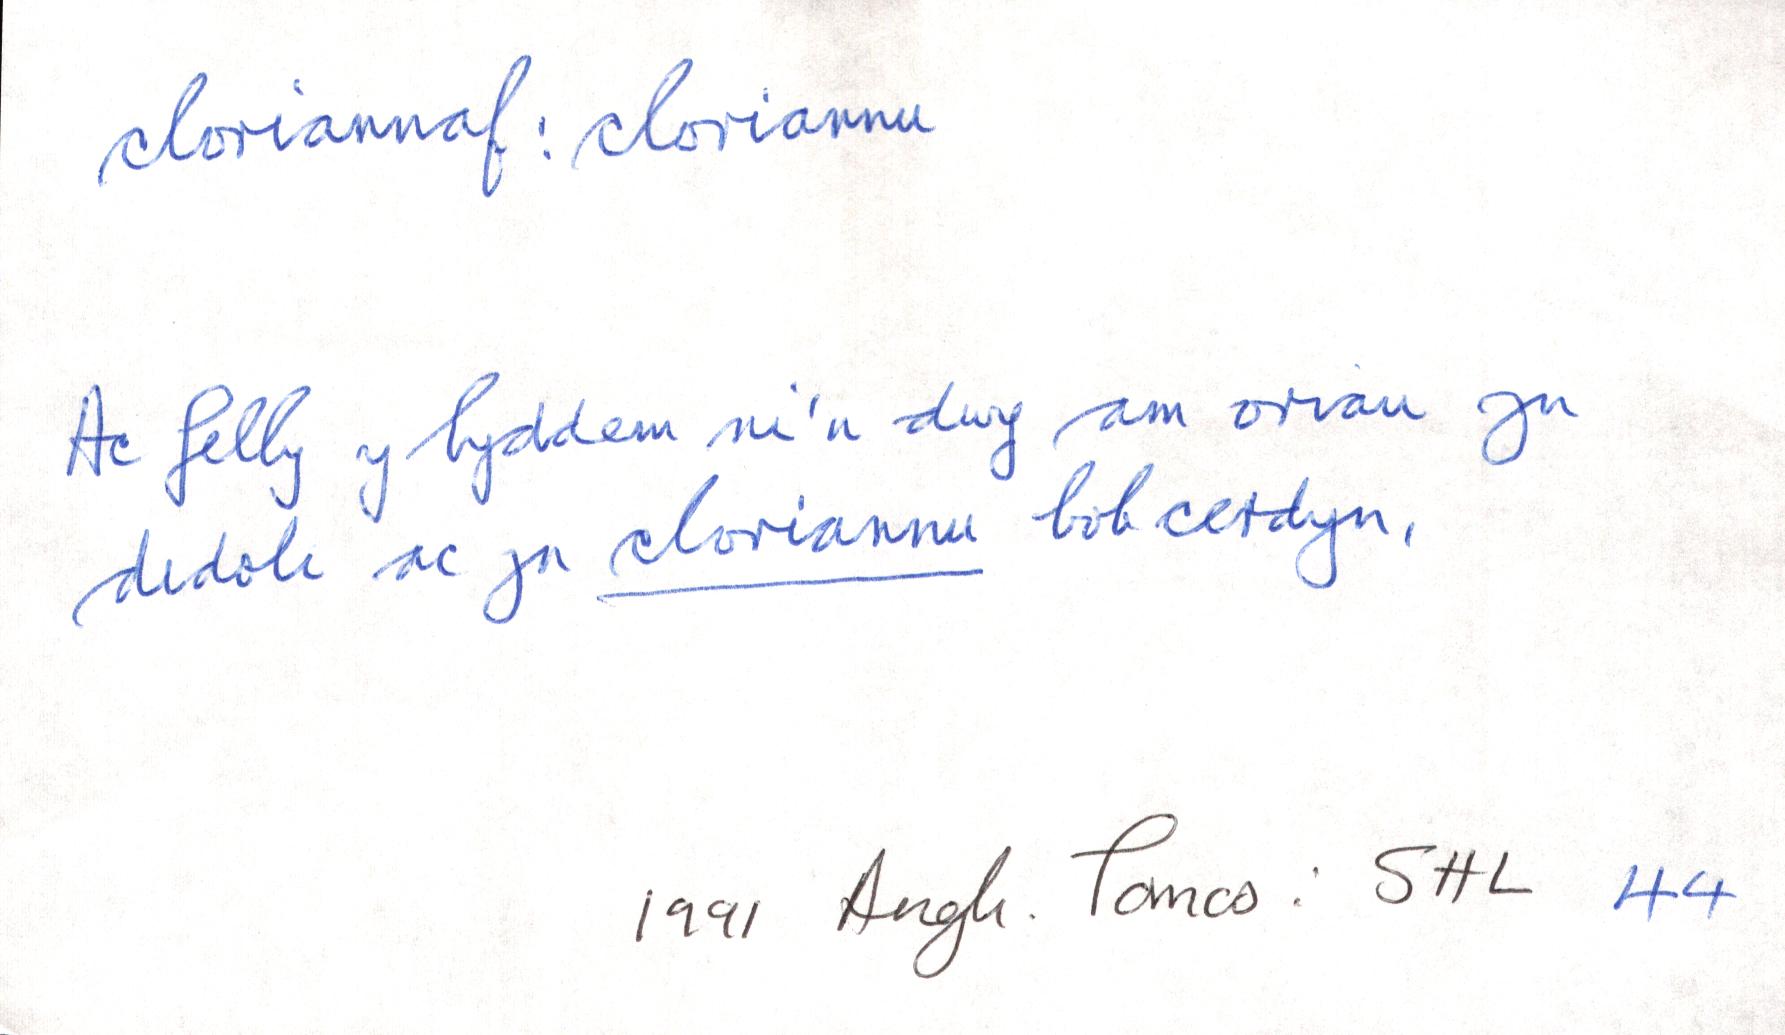 cloriannaf: cloriannu
Ac felly y byddem ni'n dwg am oriau yn
didoli ac yn cloriannu bob cerdyn,
1991 Angh. Tomos: SHL 44